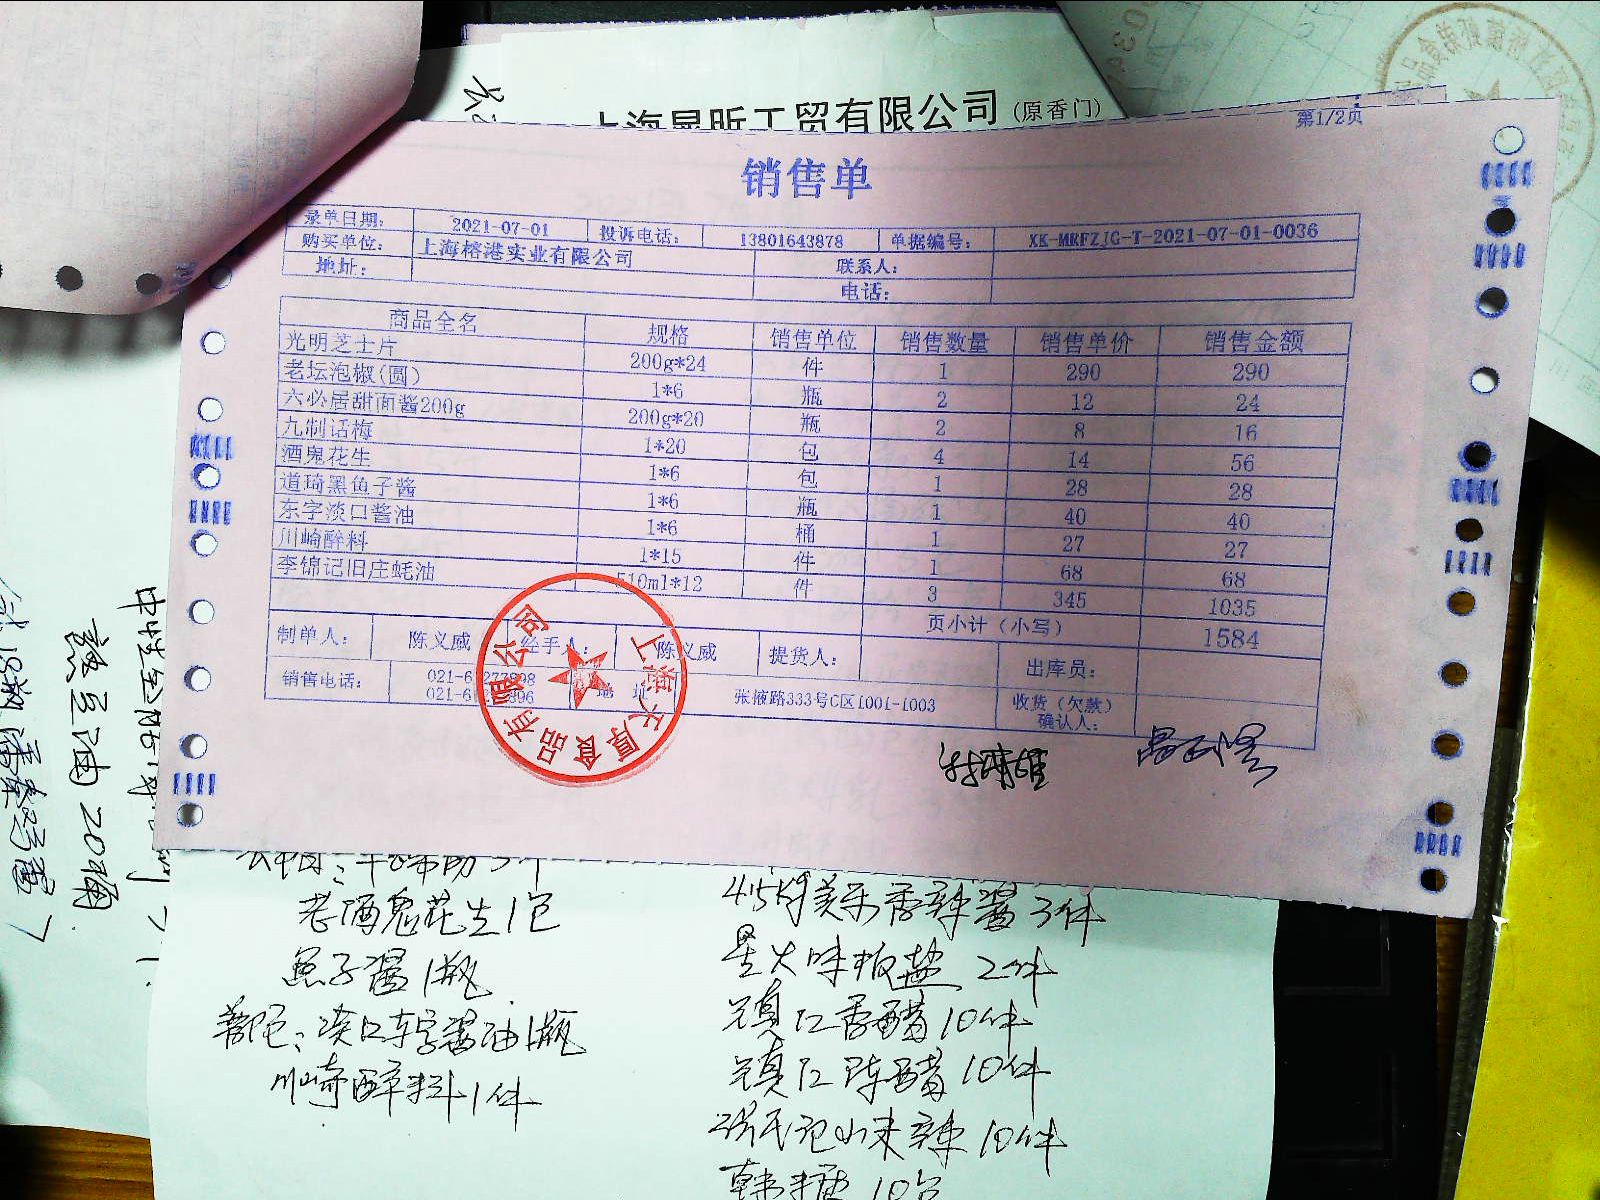 上海昃昕工贸有限公司(原香门)
第1/2页
销售单
录单日期: 2021-07-01 投诉电话: 13801643878 单据编号: XK-MRFZJG-T-2021-07-01-0036
购买单位: 上海榕港实业有限公司 联系人:
地址: 电话:
商品全名 规格 销售单位 销售数量 销售单价 销售金额
光明芝士片 200g*24 件 1 290 290
老坛泡椒(圆) 1*6 瓶 2 12 24
六必居甜面酱200g 200g*20 瓶 2 8 16
九制话梅 1*20 包 4 14 56
酒鬼花生 1*6 包 1 28 28
道琦黑鱼子酱 1*6 瓶 1 40 40
东字淡口酱油 1*6 桶 1 27 27
川崎醉料 1*15 件 1 68 68
李锦记旧庄蚝油 510ml*12 件 3 345 1035
页小计（小写） 1584
制单人: 陈义威 经手人: 陈义威 提货人: 出库员:
销售电话: 地址 张掖路333号C区1001-1003 收货（欠款）
确认人:
上海天厚食品有限公司
老酒鬼花生1包
鱼子酱1瓶
普陀: 淡口东字酱油1瓶
川崎醉料1件
4.5kg美乐香辣酱3件
星火味极盐 2件
镇江香醋10件
镇江陈醋10件
10件
韩丰糖 10包
豉豆油20桶